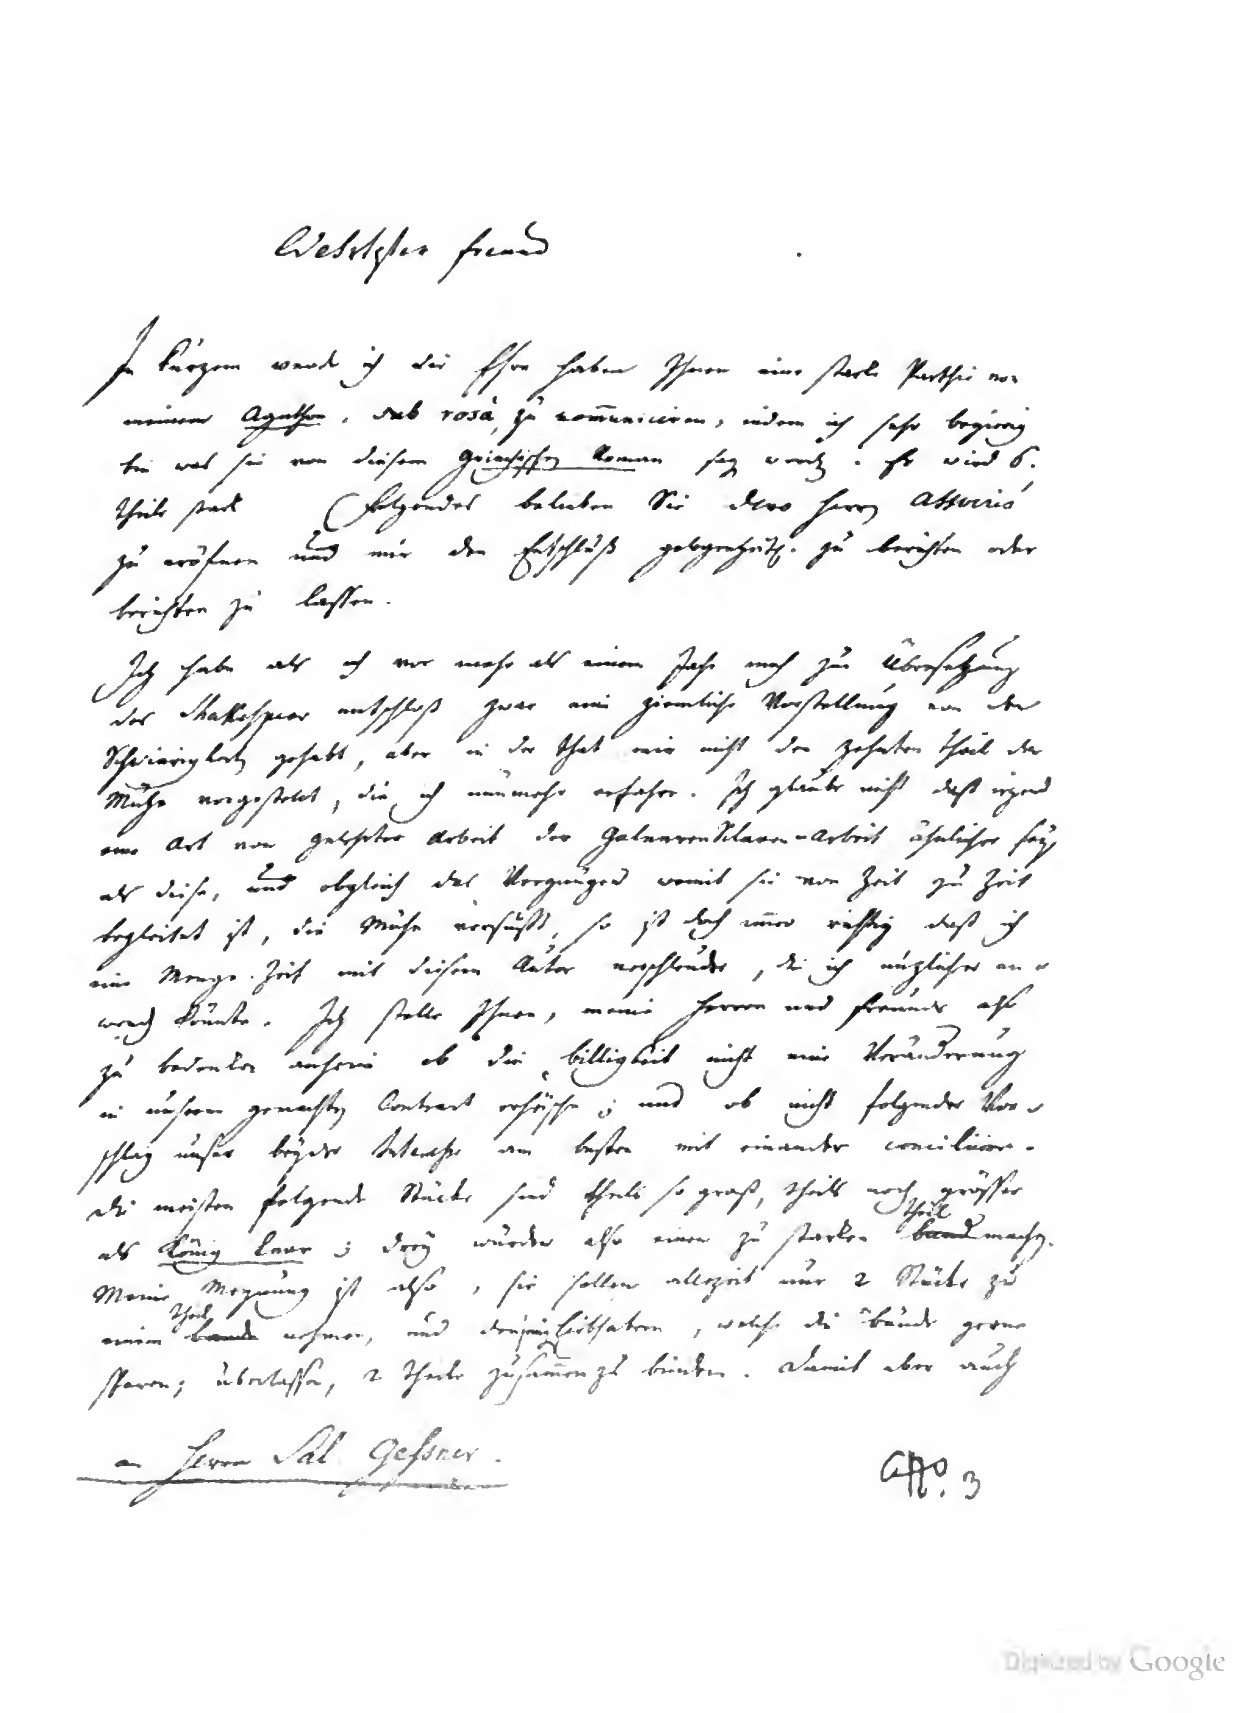 Wehrtester Freund
In kurzem werde ich die Ehre haben Ihnen eine starke Parthie von
meinem Agathon, sub rosâ, zu communiciren, indem ich sehr begierig
bin was sie von diesem Griechischen Roman sagen werden. Er wird 6.
Theile stark (Folgendes belieben Sie dero Herrn Associés
zu eröfnen und mir den Entschluß gelegenheitl. zu berichten oder
berichten zu lassen.
Ich habe als ich vor mehr als einem Jahr mich zur Übersetzung
des Shakespear entschloß zwar eine ziemliche Vorstellung von den
Schwierigkeiten gehabt, aber in der That mir nicht den zehnten Theil der
Mühe vorgestellt, die ich nunmehr erfahre. Ich glaube nicht daß irgend
eine Art von gelehrter Arbeit der Galeeren Sclaven-Arbeit ähnlicher sey,
als diese, und obgleich das Vergnügen womit sie von Zeit zu Zeit
begleitet ist, die Mühe versüßt, so ist doch immer richtig daß ich
eine Menge Zeit mit diesem Autor verschleudre, die ich nüzlicher an-
wenden könnte. Ich stelle Ihnen, meine Herren und Freunde also
zu bedenken anheim ob die billigkeit nicht eine Veränderung
in unserm gemachten Contract erheische; und ob nicht folgender Vor-
schlag unser beyder Interesse am besten mit einander conciliire.
Die meisten folgende Stücke sind theils so groß, theils noch grösser
als König Lear; drey würden also einen zu starken band Theil machen.
Meine Meynung ist also, sie sollen allezeit nur 2 Stücke zu
einem bande Theile nehmen, und denjenigen Liebhabern, welche die bände gerne
sparen; überlassen, 2 Theile zusammen zu binden. Damit aber auch
an Herrn Sal. Gessner.
No. 3
Digitized by Google